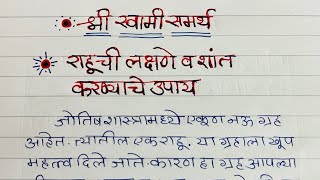 श्री स्वामी समर्थ
राहूची लक्षणे व शांत
करण्याचे उपाय
जोतिष शास्त्रामध्ये एकूण नऊ ग्रह
आहेत. त्यातील एक राहू. या ग्रहाला खूप
महत्त्व दिले जाते. कारण हा ग्रह आपल्या